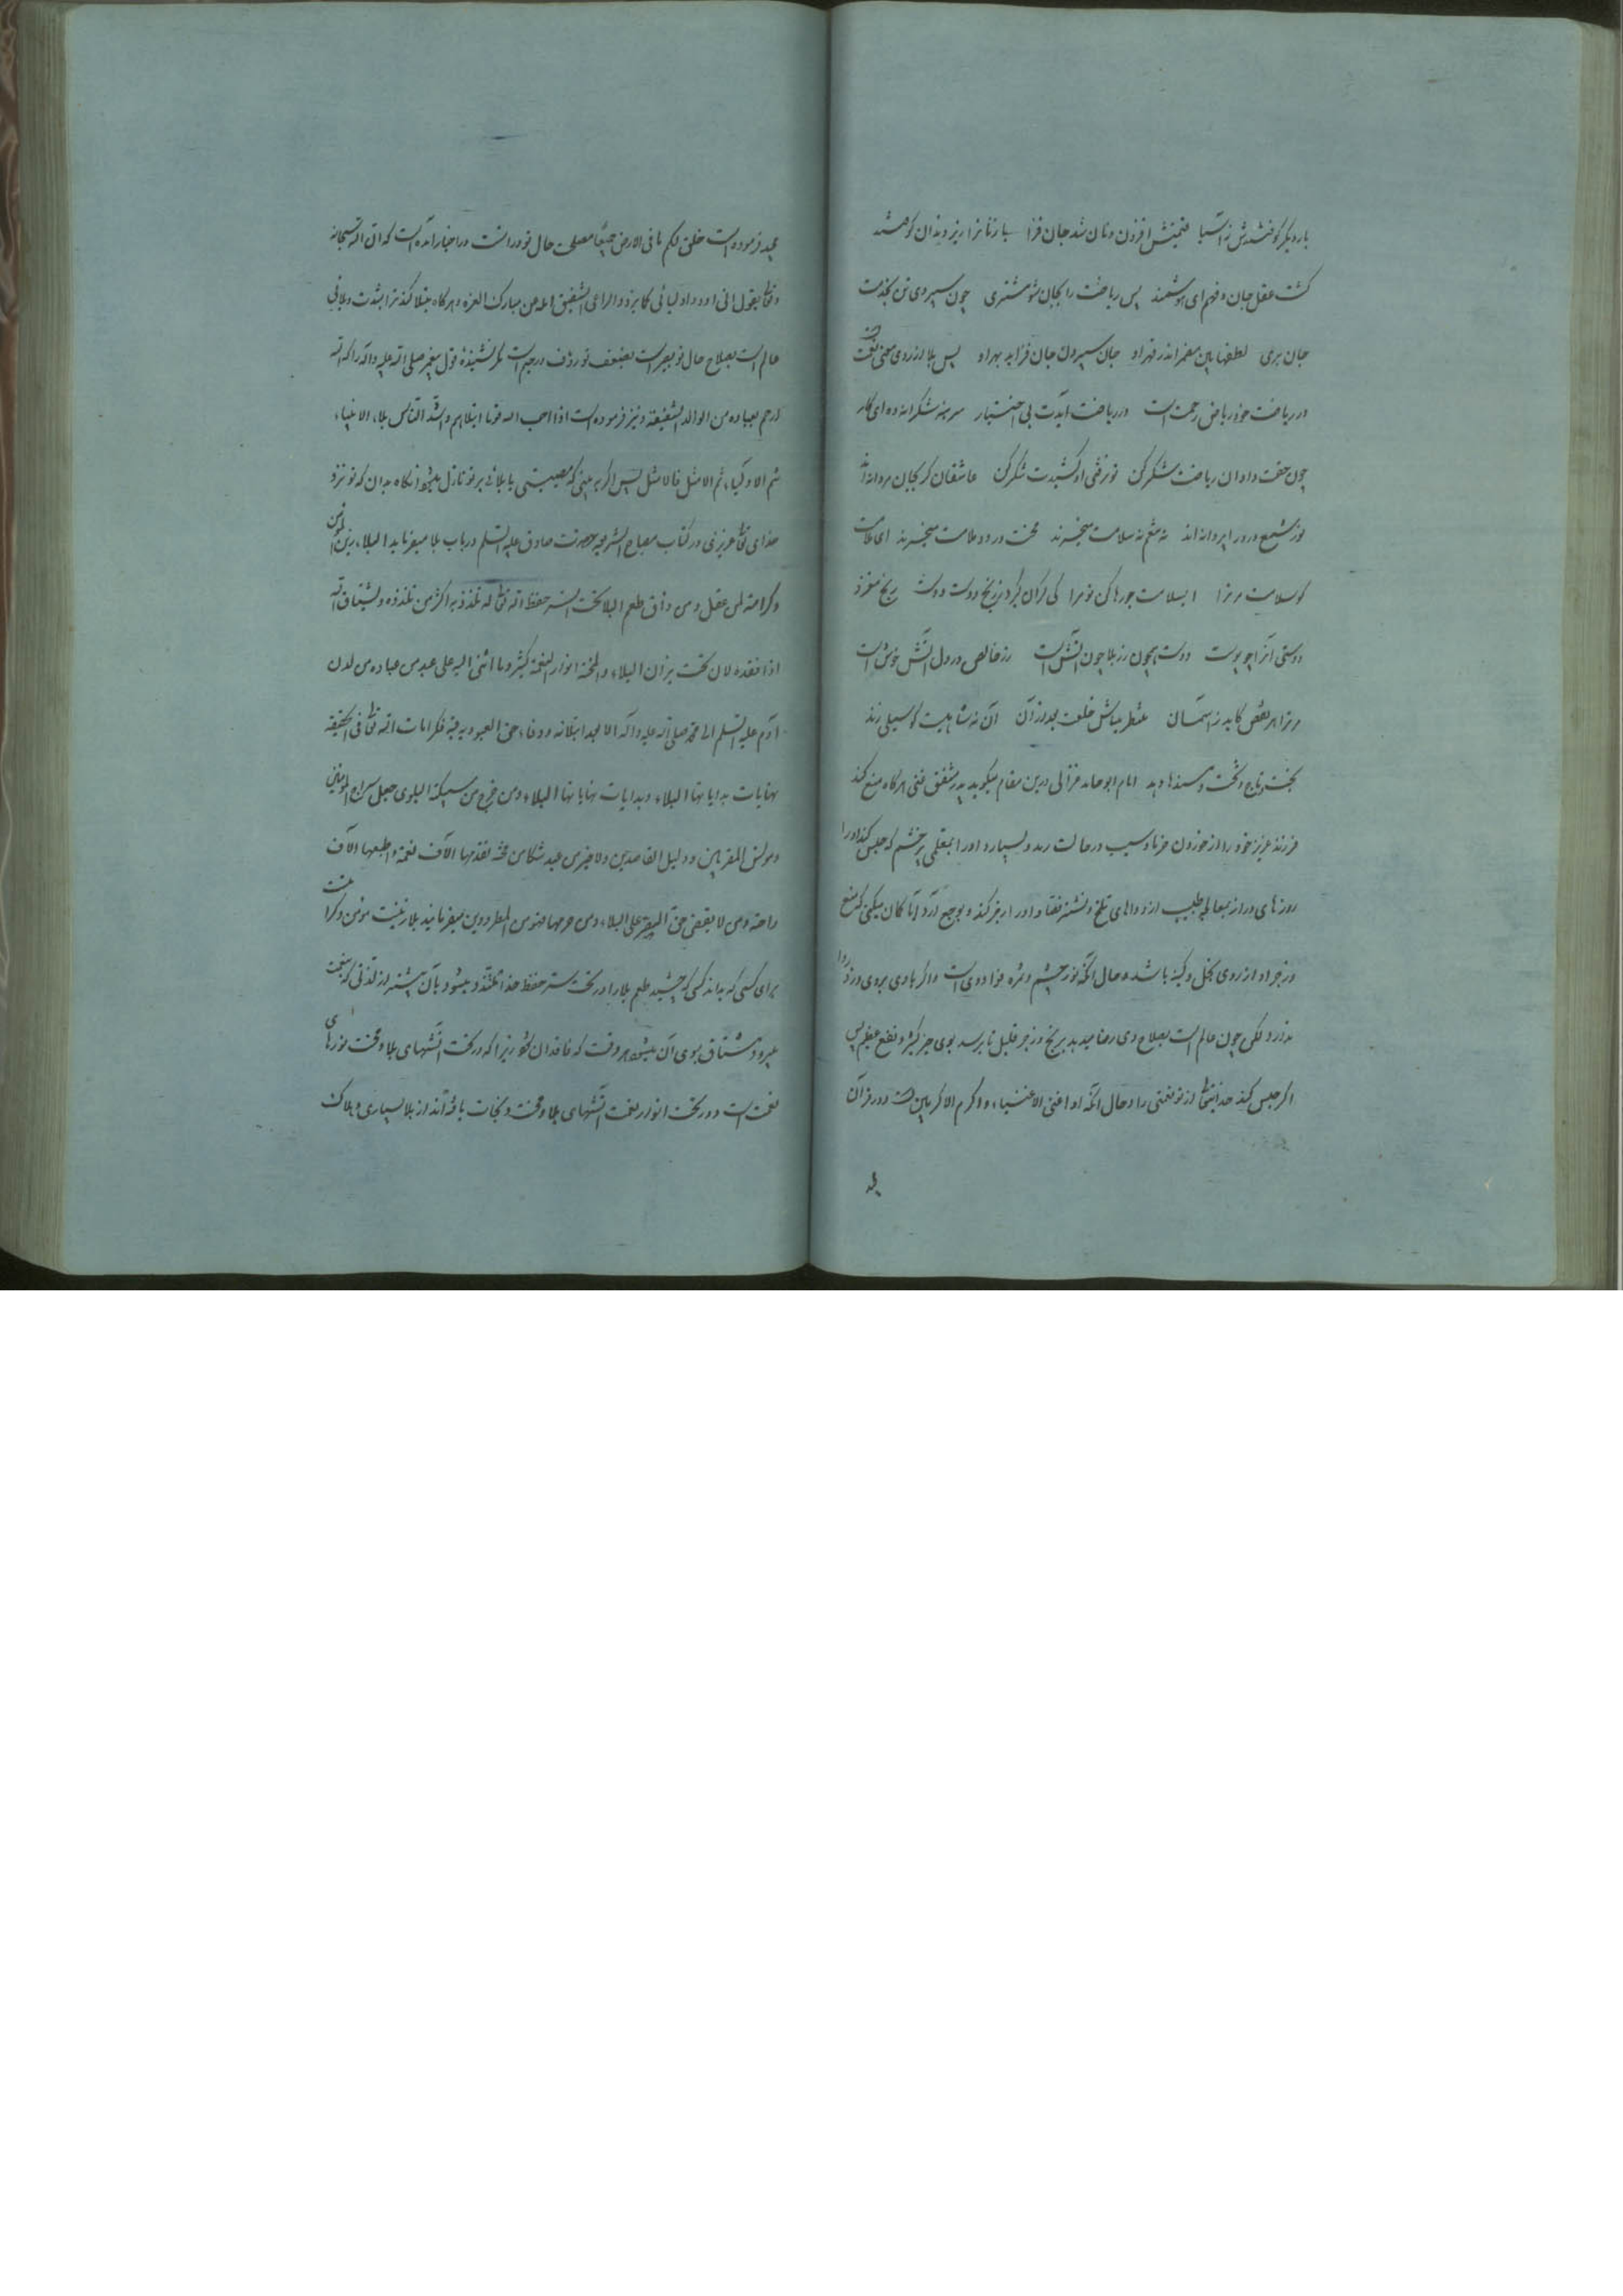 بار دیگر کوفتندش ز آسیا قیمتش افزون و نان شد جان فزا باز نانرا زیر دندان کوفتند
گشت عقل و جان و فهم ای هوشمند پس ریاضت را بجان شو مشتری چون سپردی تن بخدمت
جان بری لطفهابین مضمر اندر قهر او جان سپردن جان فزاید بهر او پس بلا از روی معنی
ور ریاضت آیدت بی اختیار سر بنه شکرانه ده ای کار
چون حقت داد آن ریاضت شکر کن تو نرفتی او کشیدت شکر کن عاشقان گر بجان مردانه اند
نور شمع ورا پروانه اند نه سلامت میخرند محنت و درد و ملامت میخرند ای ملامت
کو سلامت مر ترا ای سلامت جو رها کن تو مرا کی گران گیرد ز رنج دوست دوست رنج مغز و
دوستی آنرا چو پوست دوست همچون زر بلا چون آتش است زر خالص در دل آتش خوش است
مر ترا هر زخم کاید ز آسمان منتظر میباش خلعت بعد از آن آن نه شاهیست کو سیلی زند
بخت و تاج و تخت و مسندها دهد امام ابو حامد غزالی درین مقام میگوید پدر مشفق غنی هرگاه منع کند
فرزند عزیز خود را از خوردن خرما و سیب در حالت رمد و بسپارد او را بمعلمی پرخشم که حبس کند او را
روزهای دراز بمعالجه طبیب از دواهای تلخ و نشتر و او را زجر کند و بوجع آرد آیا گمان میکنی که منع
و زجر او از روی بخل و کینه باشد و حال آنکه نور چشم و ثمره فؤاد وی است و اگر بادی بروی وزد روا
ندارد لکن چون عالم است بصلاح وی رضا میدهد برنج و زجر قلیل تا برسد بوی خیر کثیر و نفع عظیم پس
اگر حبس کند خدایتعالی از تو نعمتی را و حال آنکه او اغنی الاغنیاء و اکرم الاکرمین است و در قرآن
مجید فرموده است خلق لکم ما فی الارض جمیعا مصلحت حال تو در آنست و در اخبار آمده است که ان الله سبحانه
و تعالی یقول انی اذود اولیائی کما یذود الراعی الشفیق ابله عن مبارک العره و هرگاه مبتلا کند ترا بشدت و بلائی
عالم است بصلاح حال تو بصیر است بضعف تو رؤف و رحیم است مگر نشنیده قول پیغمبر صلی الله علیه و آله را که الله
ارحم بعباده من الوالدة الشفیقة و نیز فرموده است اذا احب الله قوما ابتلاهم و اشد الناس بلاء الانبیاء
ثم الاولیاء ثم الامثل فالامثل پس اگر به بینی که مصیبتی یا بلائی بر تو نازل میشود آنگاه بدان که تو نزد
خدای تعالی عزیزی در کتاب مصباح الشریعه حضرت صادق علیه السلم در باب بلا میفرماید البلاء زین المؤمن
و کرامة لمن عقل و من ذاق طعم البلاء تحت ستر حفظ الله تعالی له تلذذ به اکثر من تلذذه و یشتاق الیه
اذا فقده لان تحت نیران البلاء و المحنة انوار النعمة و ما اثنی الله علی عبد من عباده من لدن
آدم علیه السلم الی محمد صلی الله علیه و آله الا بعد ابتلائه و وفاء حق العبودیه فیه فکرامات الله تعالی فی الحقیقة
نهایات بدایاتها البلاء و بدایات نهایاتها البلاء و من خرج من سبیکة البلوی جعل سراج المؤمنین
و مونس المقربین و دلیل القاصدین و لا خیر فی عبد شکا من محنة تقدمها الآف نعمة و اتبعها الآف
راحة و من لا یقضی حق الصبر علی البلاء و من حرمها فهو من المطرودین میفرماید بلا زینت مؤمن و کرامت
برای کسی که بداند کسی که چشید طعم بلا را در تحت ستر حفظ خدا متلذذ میشود بآن بیشتر از تلذذی که بنعمت
میبرد و مشتاق بوی آن میشود هر وقت که فاقد آن شود زیرا که در تحت آتشهای بلا و محنت نورهای
نعمت است و در تحت انوار نعمت آتشهای بلا و محنت و نجات یافته اند از بلا بسیاری و هلاک